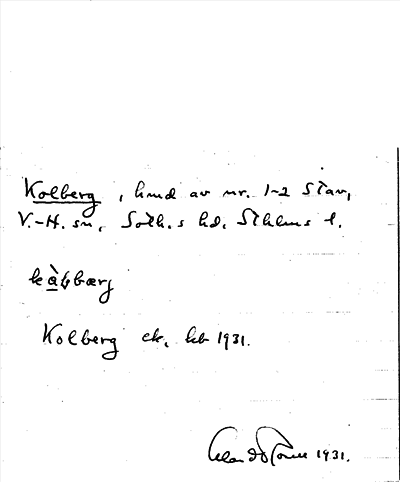 Kolberg, hmd av nr. 1-2 Stav,
V.-H. sn, Soth.s hd. Sthlms l.
Kolberg ek. kb 1931.
1931.